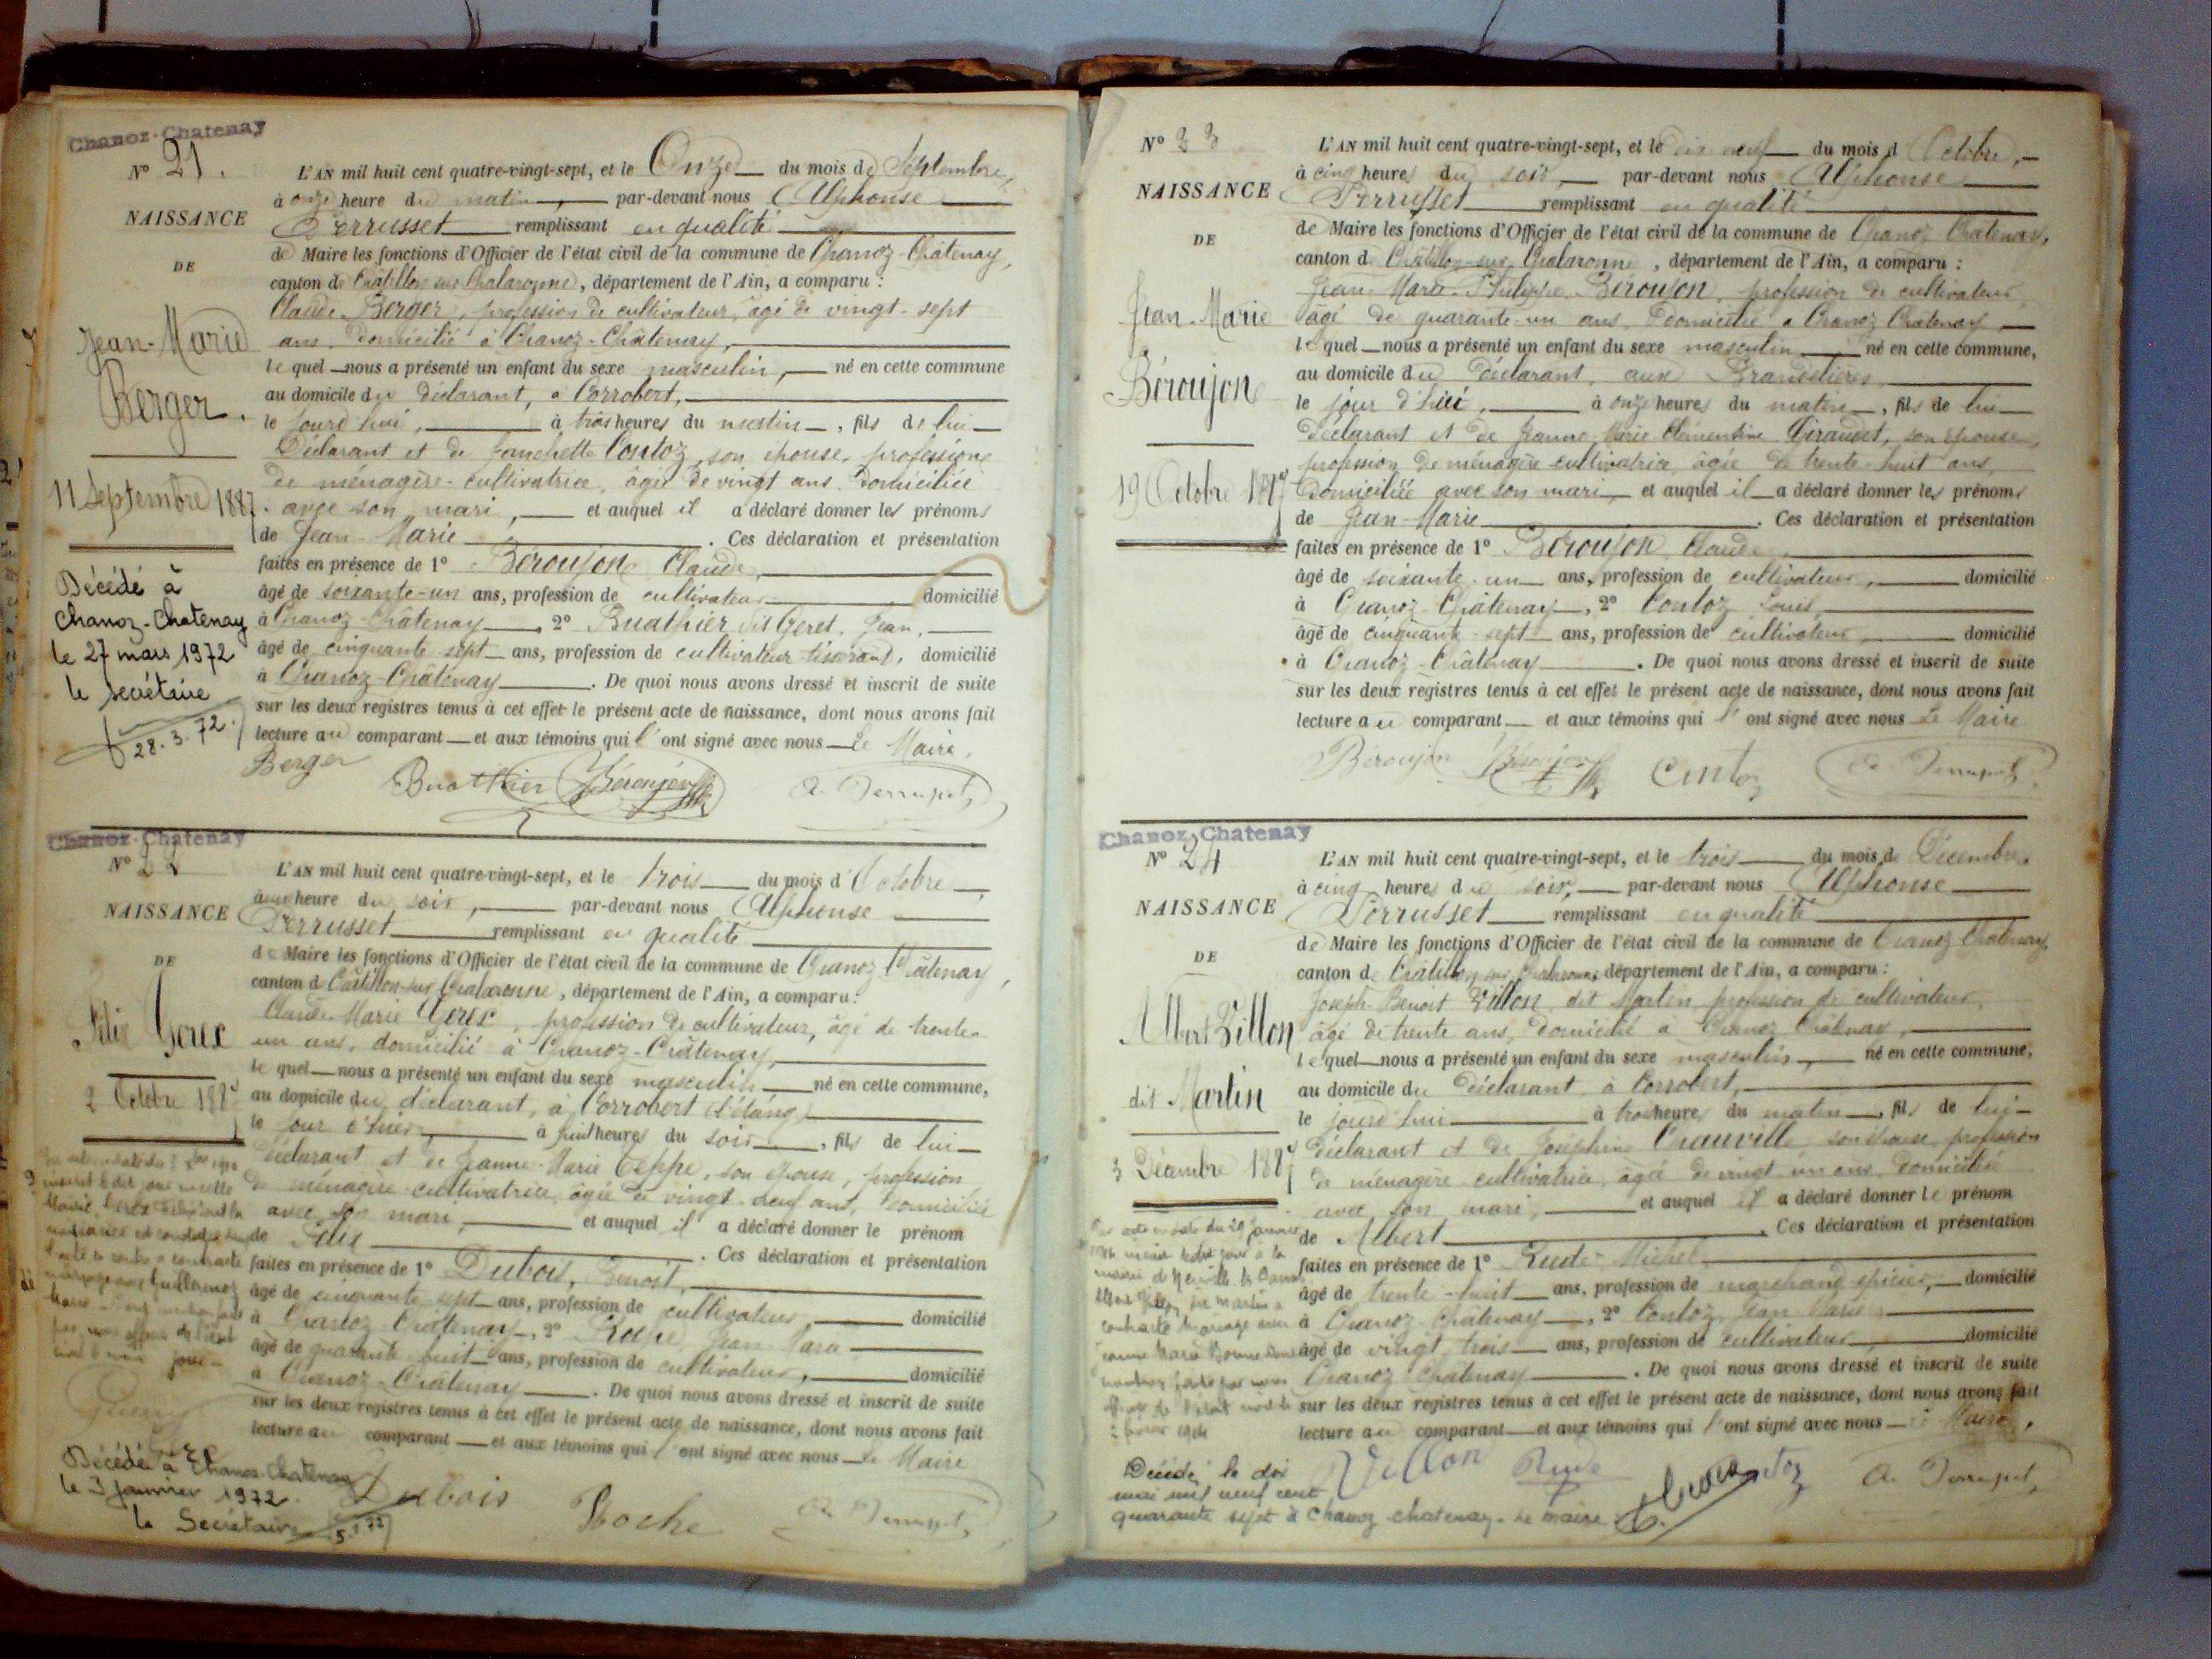 Chanoz-Chatenay
N° 21.
NAISSANCE
DE
Jean-Marie
Berger.
11 Septembre 1887.
Décédé à
Chanoz-Chatenay
le 27 mars 1972
le secrétaire
28.3.72.
L'AN mil huit cent quatre-vingt-sept, et le Onze du mois de Septembre,
à onze heure du matin, par-devant nous Alphonse
Perrusset remplissant en qualité
de Maire les fonctions d'Officier de l'état civil de la commune de Chanoz-Châtenay,
canton de Châtillon sur Chalaronne, département de l'Ain, a comparu :
Claude Berger, profession de cultivateur, âgé de vingt-sept
ans, domicilié à Chanoz-Châtenay,
le quel nous a présenté un enfant du sexe masculin, né en cette commune
au domicile du déclarant, à Corrobert,
le jourd'hui, à trois heures du matin, fils de lui
Déclarant et de Fanchette Contoz, son épouse, profession
de ménagère-cultivatrice, âgée de vingt ans, domiciliée
avec son mari, et auquel il a déclaré donner les prénoms
de Jean-Marie. Ces déclaration et présentation
faites en présence de 1° Béroujon Claude,
âgé de soixante-un ans, profession de cultivateur domicilié
à Chanoz-Châtenay, 2° Buathier dit Geret, Jean,
âgé de cinquante sept ans, profession de cultivateur tisserant, domicilié
à Chanoz-Châtenay. De quoi nous avons dressé et inscrit de suite
sur les deux registres tenus à cet effet le présent acte de naissance, dont nous avons fait
lecture au comparant et aux témoins qui l'ont signé avec nous Le Maire.
Berger Buathier Béroujon A. Perrusset
Chanoz-Chatenay
N° 22
NAISSANCE
DE
Félix Gerex
2 Octobre 1887
Décédé à Chanoz-Chatenay
le 3 janvier 1972.
le Secrétaire
L'AN mil huit cent quatre-vingt-sept, et le trois du mois d'Octobre,
à une heure du soir, par-devant nous Alphonse
Perrusset remplissant en qualité
de Maire les fonctions d'Officier de l'état civil de la commune de Chanoz-Châtenay,
canton de Châtillon-sur-Chalaronne, département de l'Ain, a comparu :
Claude-Marie Gerex, profession de cultivateur, âgé de trente-
un ans, domicilié à Chanoz-Châtenay,
le quel nous a présenté un enfant du sexe masculin né en cette commune,
au domicile du déclarant, à Corrobert (l'étang)
le jour d'hier, à huit heures du soir, fils de lui
déclarant et de Jeanne-Marie Teppe, son épouse, profession
de ménagère-cultivatrice, âgée de vingt-neuf ans, domiciliée
avec son mari, et auquel il a déclaré donner le prénom
de Félix. Ces déclaration et présentation
faites en présence de 1° Dubois, Benoît,
âgé de cinquante sept ans, profession de cultivateur, domicilié
à Chanoz-Châtenay, 2° Roche, Jean Marie
âgé de quarante-huit ans, profession de cultivateur, domicilié
à Chanoz-Châtenay. De quoi nous avons dressé et inscrit de suite
sur les deux registres tenus à cet effet le présent acte de naissance, dont nous avons fait
lecture au comparant et aux témoins qui l'ont signé avec nous Le Maire
Dubois Roche A. Perrusset
N° 23
NAISSANCE
DE
Jean-Marie
Béroujon
19 Octobre 1887
L'AN mil huit cent quatre-vingt-sept, et le dix neuf du mois d'Octobre,
à cinq heures du soir, par-devant nous Alphonse
Perrusset remplissant en qualité
de Maire les fonctions d'Officier de l'état civil de la commune de Chanoz-Châtenay,
canton de Châtillon-sur-Chalaronne, département de l'Ain, a comparu :
Jean-Marie-Philippe Béroujon, profession de cultivateur
âgé de quarante-un ans, domicilié à Chanoz-Châtenay
le quel nous a présenté un enfant du sexe masculin né en cette commune,
au domicile du déclarant, aux
le jour d'hui, à onze heures du matin, fils de lui
déclarant et de Jeanne-Marie Clémentine Giraudet, son épouse,
profession de ménagère cultivatrice, âgée de trente-huit ans,
domiciliée avec son mari, et auquel il a déclaré donner les prénoms
de Jean-Marie. Ces déclaration et présentation
faites en présence de 1° Béroujon, Claude,
âgé de soixante-un ans, profession de cultivateur, domicilié
à Chanoz-Châtenay, 2° Contoz Louis,
âgé de cinquante-sept ans, profession de cultivateur, domicilié
à Chanoz-Châtenay. De quoi nous avons dressé et inscrit de suite
sur les deux registres tenus à cet effet le présent acte de naissance, dont nous avons fait
lecture au comparant et aux témoins qui l'ont signé avec nous Le Maire
Béroujon Béroujon Contoz A. Perrusset
Chanoz-Chatenay
N° 24
NAISSANCE
DE
Albert Villon
dit Martin
3 Décembre 1887
L'AN mil huit cent quatre-vingt-sept, et le trois du mois de Décembre,
à cinq heures du soir, par-devant nous Alphonse
Perrusset remplissant en qualité
de Maire les fonctions d'Officier de l'état civil de la commune de Chanoz-Châtenay,
canton de Châtillon-sur-Chalaronne, département de l'Ain, a comparu :
Joseph Benoit Villon, dit Martin, profession de cultivateur,
âgé de trente ans, domicilié à Chanoz-Châtenay,
le quel nous a présenté un enfant du sexe masculin, né en cette commune,
au domicile du déclarant, à Corrobert,
le jourd'hui à trois heures du matin, fils de lui
déclarant et de Joséphine son épouse, profession
de ménagère cultivatrice, âgée de vingt un ans, domiciliée
avec son mari, et auquel il a déclaré donner le prénom
de Albert. Ces déclaration et présentation
faites en présence de 1° Rude Michel
âgé de trente-huit ans, profession de marchand épicier, domicilié
à Chanoz-Châtenay, 2° Contoz, Jean-Marie
âgé de vingt trois ans, profession de cultivateur, domicilié
Chanoz-Châtenay. De quoi nous avons dressé et inscrit de suite
sur les deux registres tenus à cet effet le présent acte de naissance, dont nous avons fait
lecture au comparant et aux témoins qui l'ont signé avec nous le Maire.
Villon Rude Contoz A. Perrusset
Décédé le dix
mai mil neuf cent
quarante sept à Chanoz-Chatenay. Le maire